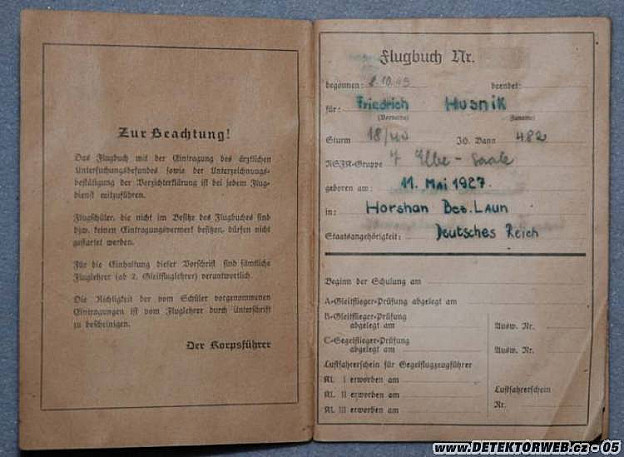 Zur Beachtung!
Das Flugbuch mit der Eintragung des ärztlichen
Untersuchungsbefundes sowie der Unterzeichnungs-
bestätigung der Verzichterklärung ist bei jedem Flug-
dienst mitzuführen.
Flugschüler, die nicht im Besitze des Flugbuches sind
bzw. keinen Eintragungsvermerk besitzen, dürfen nicht
gestartet werden.
Für die Einhaltung dieser Vorschrift sind sämtliche
Fluglehrer (ab 2. Gleitfluglehrer) verantwortlich.
Die Richtigkeit der vom Schüler vorgenommenen
Eintragungen ist vom Fluglehrer durch Unterschrift
zu bescheinigen.
Der Korpsführer
Flugbuch Nr.
begonnen: 10.43 beendet:
für: Friedrich Husnik
(Vorname) (Zuname)
Sturm 18/40 IG. Bann 482
NSFK-Gruppe 7 Elbe-Saale
geboren am: 11. Mai 1927.
in: Horshan Bes. Laun
Staatsangehörigkeit: Deutsches Reich
Beginn der Schulung am
A-Gleitflieger-Prüfung abgelegt am
B-Gleitflieger-Prüfung
abgelegt am Ausw. Nr.
C-Segelflieger-Prüfung
abgelegt am Ausw. Nr.
Luftfahrerschein für Segelflugzeugführer
Kl. I erworben am
Kl. II erworben am Luftfahrerschein
Kl. III erworben am Nr.
www.DETEKTORWEB.cz - 05